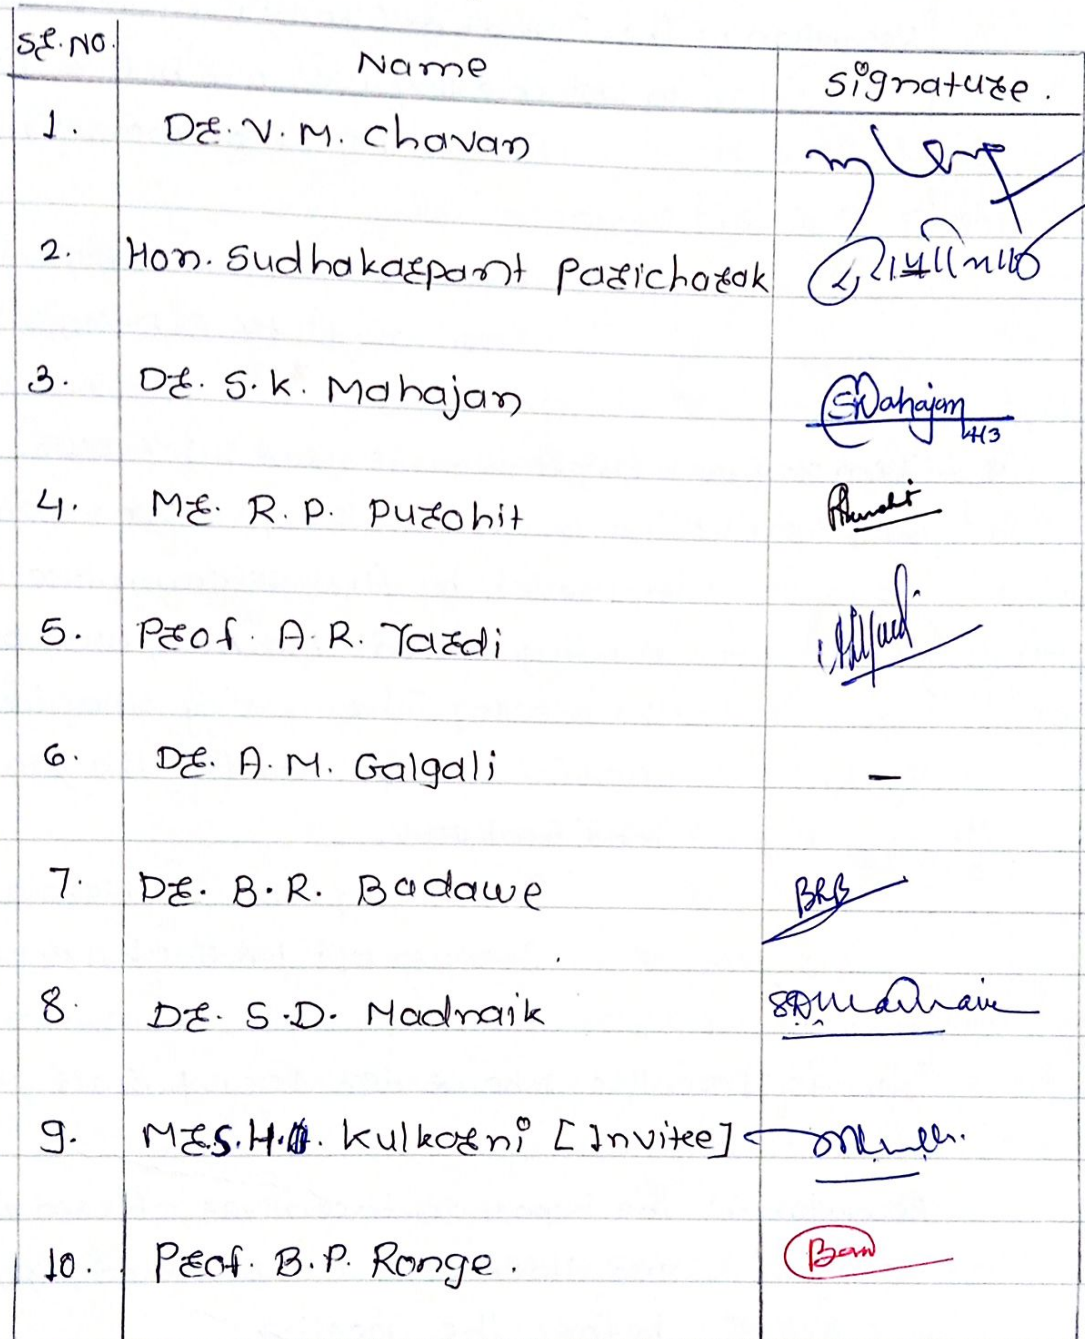 Sr. No. Name Signature.
1. Dr. V. M. Chavan
2. Hon. Sudhakarpant Paricharak
3. Dr. S. K. Mahajan SMahajan
4. Mr. R. P. Purohit
5. Prof. A. R. Yardi
6. Dr. A. M. Galgali –
7. Dr. B. R. Badawe BRB
8. Dr. S. D. Nadnaik
9. Mr. S. H. Kulkarni [Invitee]
10. Prof. B. P. Ronge.